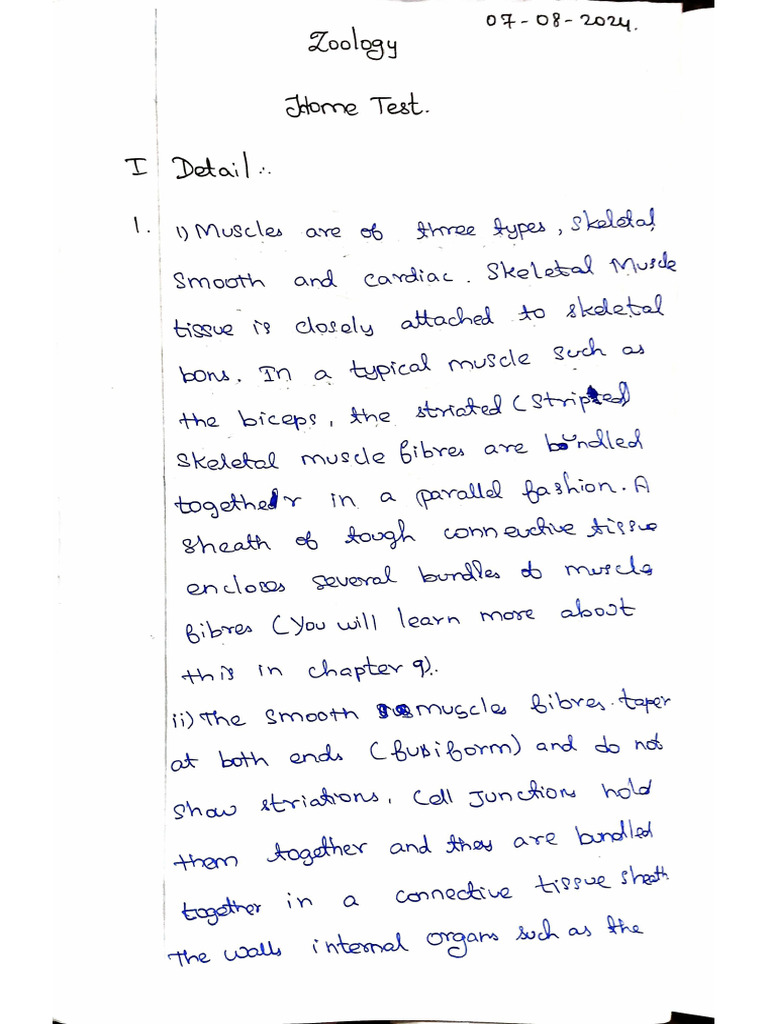 07-08-2024.
Zoology
Home Test.
I Detail:.
1. i) Muscles are of three types, Skeletal,
Smooth and cardiac. Skeletal Muscle
tissue is closely attached to skeletal
bons. In a typical muscle such as
the biceps, the striated (Striped)
Skeletal muscle fibres are bundled
together in a parallel fashion. A
Sheath of tough connective tissue
encloses several bundles of muscle
fibres (You will learn more about
this in chapter 9).
ii) The smooth muscles fibres. taper
at both ends (fusiform) and do not
show striations. Cell Junctions hold
them together and they are bundled
together in a connective tissue sheath
The walls internal organs such as the